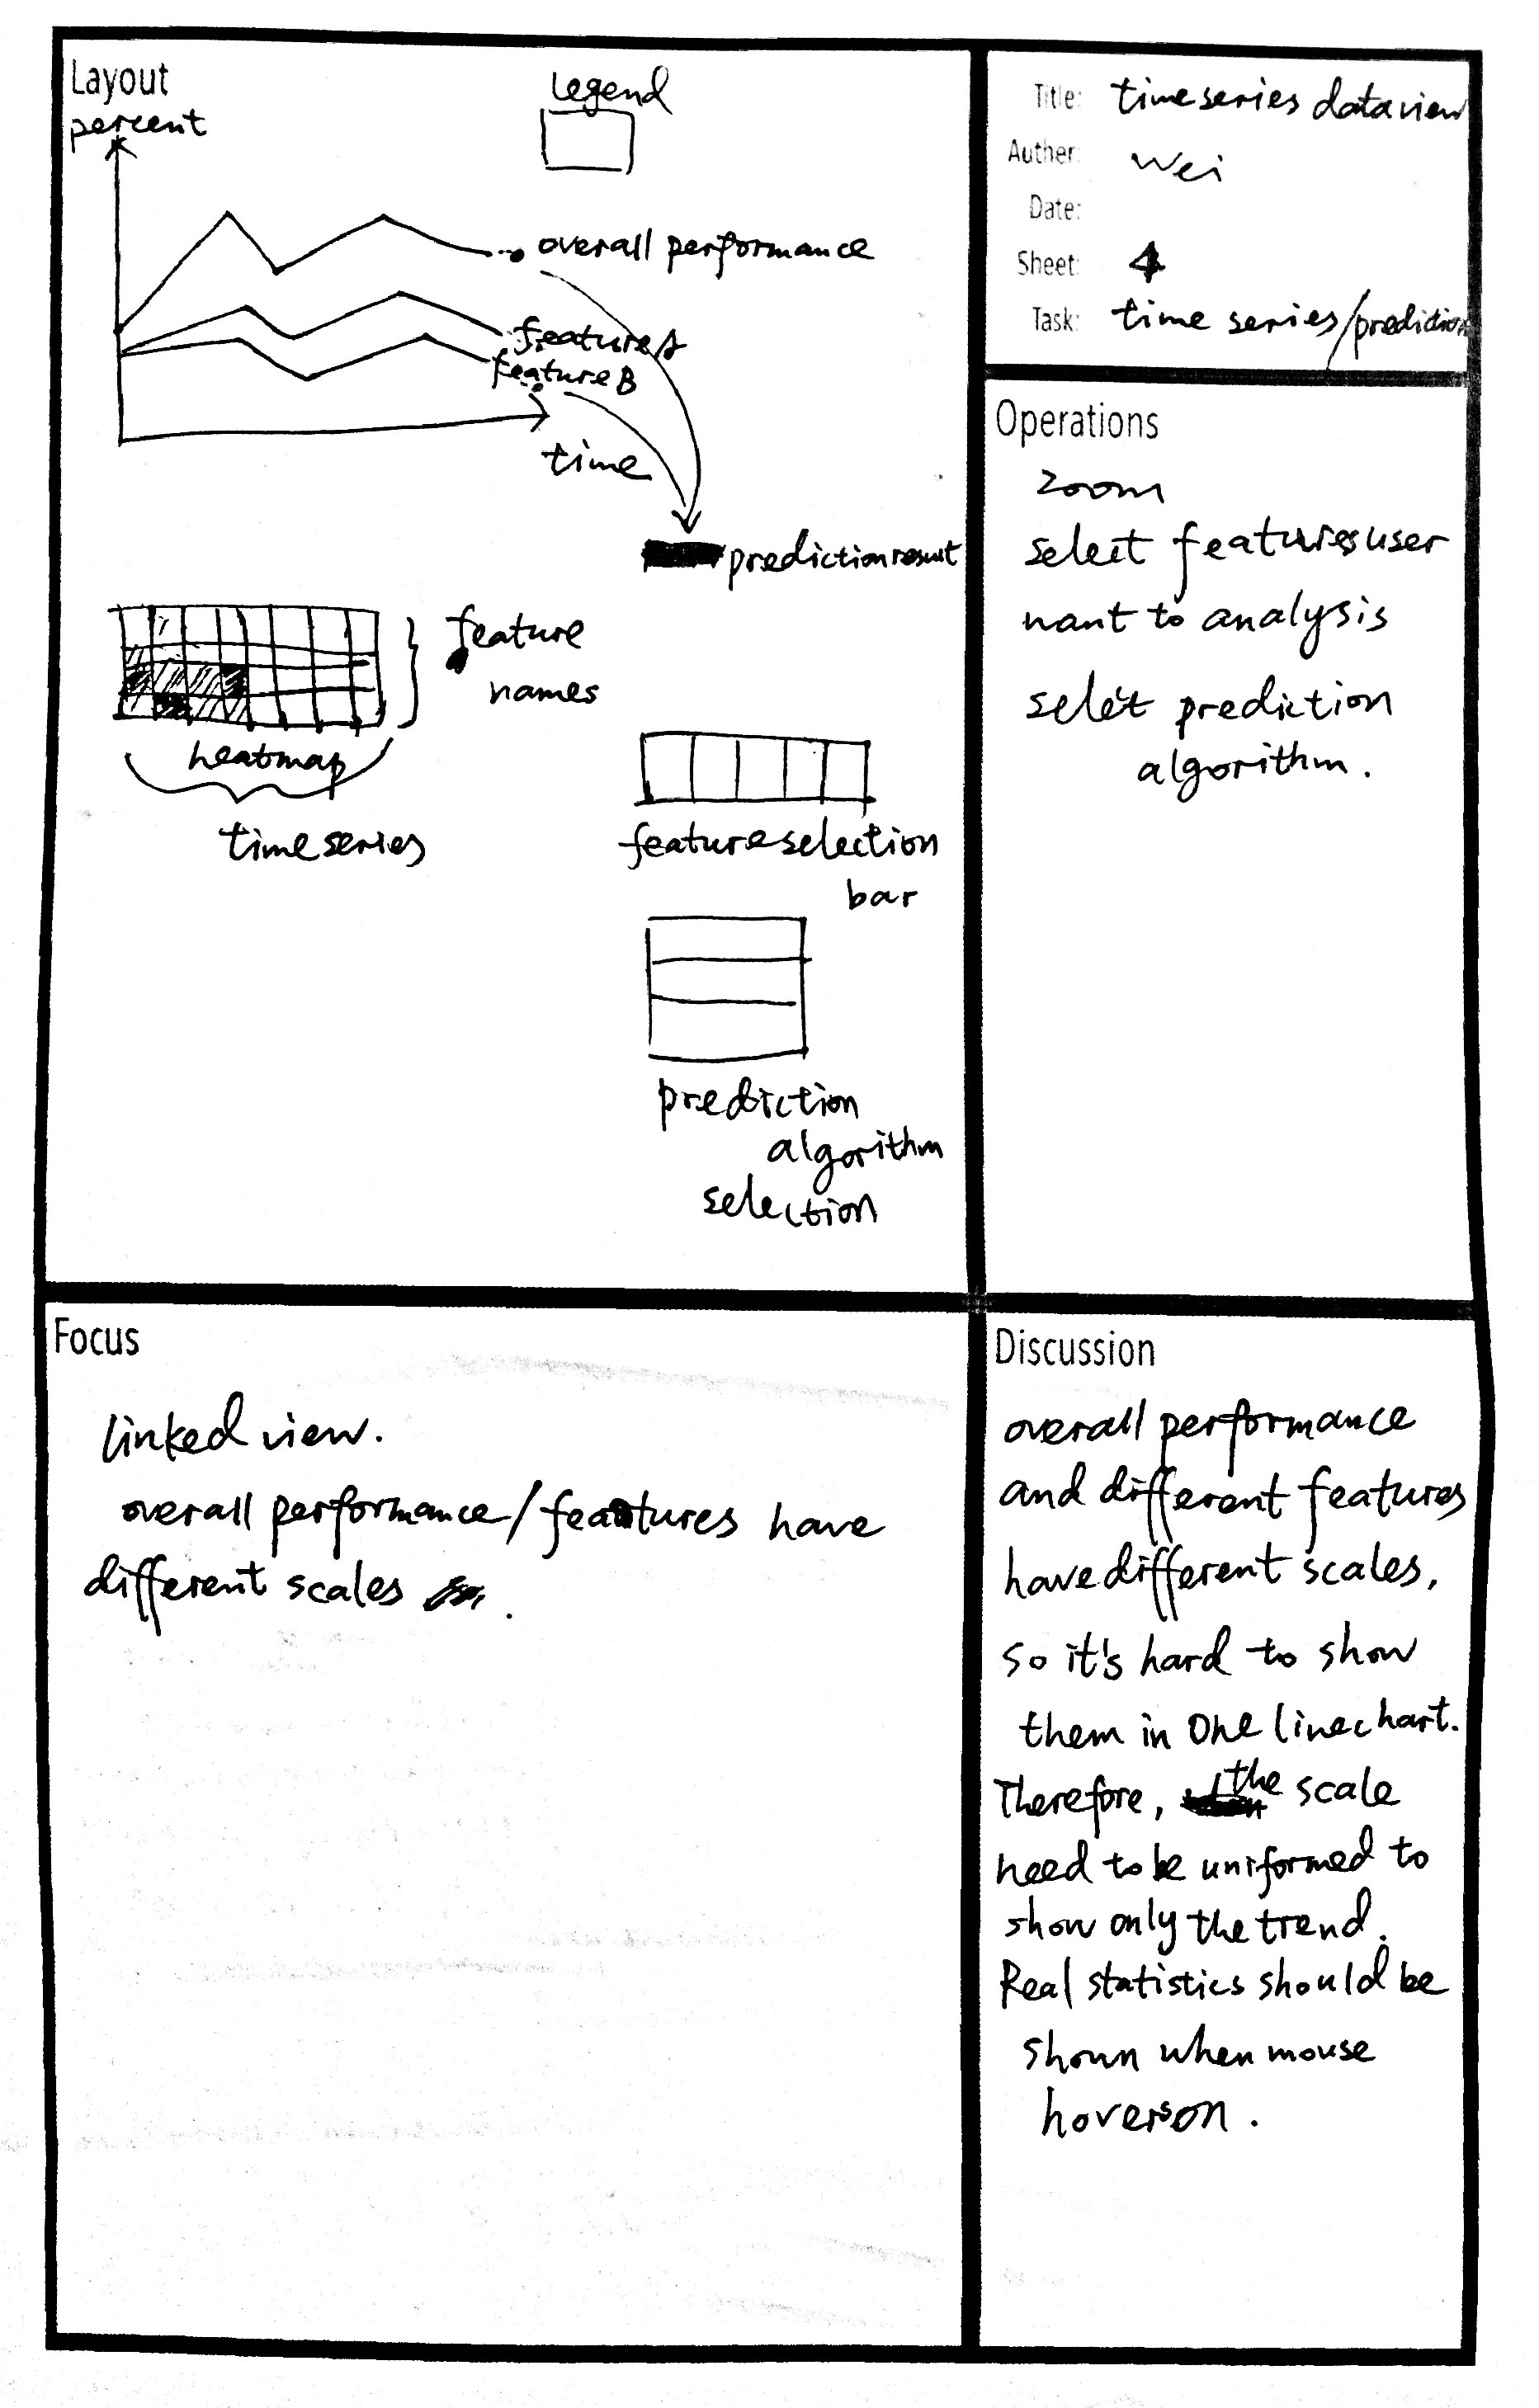 Layout
percent
Legend
overall performance
feature A
feature B
time
prediction result
feature
names
heatmap
time series
feature selection
bar
prediction
algorithm
selection
Title: time series data view
Auther: Wei
Date:
Sheet: 4
Task: time series/prediction
Operations
zoom
select features user
want to analysis
select prediction
algorithm.
Focus
linked view.
overall performance/features have
different scales .
Discussion
overall performance
and different features
have different scales,
so it's hard to show
them in one line chart.
Therefore, the scale
need to be uniformed to
show only the trend.
Real statistics should be
shown when mouse
hovers on.